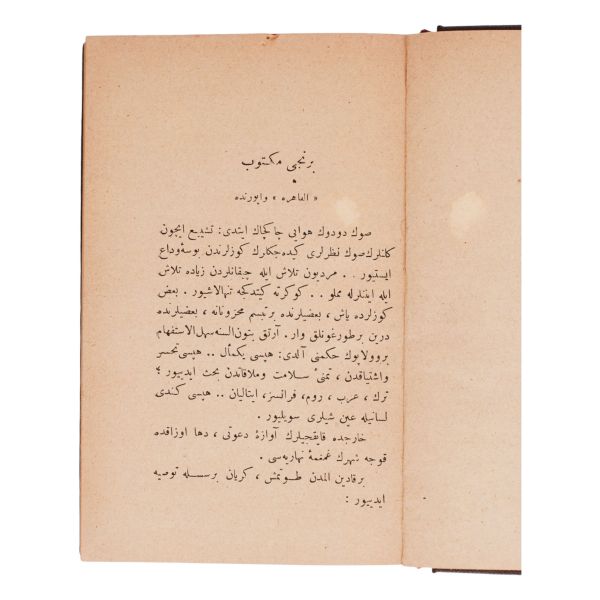 برنجی مکتوب
« القاهره » واپورنده
صوك دودوك هوایی چاکچاك ایتدی: تشییع ایچون
کلنلرك صوك نظرلری کیده‌جکلرك کوزلرندن بوسهٔ وداع
ایستیور . . مردیون تلاش ایله چیقانلردن زیاده تلاش
ایله اینلرله مملو . . کوکرته کیتدکجه تنهالاشیور . بعض
کوزلرده یاش ، بعضیلرنده برتبسم محزونانه ، بعضیلرنده
درین برطورغونلق وار . آرتق بتون السنه سهل الاستفهام
بروولاپوك حکمنی آلدی: هپسی یکمأل .. هپسی تحسر
واشتیاقدن ، تمنیٔ سلامت وملاقاتدن بحث ایدییور ؛
ترك ، عرب ، روم، فرانسز، ایتالیان .. هپسی کندی
لسانیله عین شیلری سویلیور .
خارجده قایقجیلرك آوازهٔ دعوتی ، دها اوزاقده
قوجه شهرك غمغمهٔ نهاریه‌سی .
برقادین المدن طوتمش ، کریان برسسله توصیه
ایدییور :